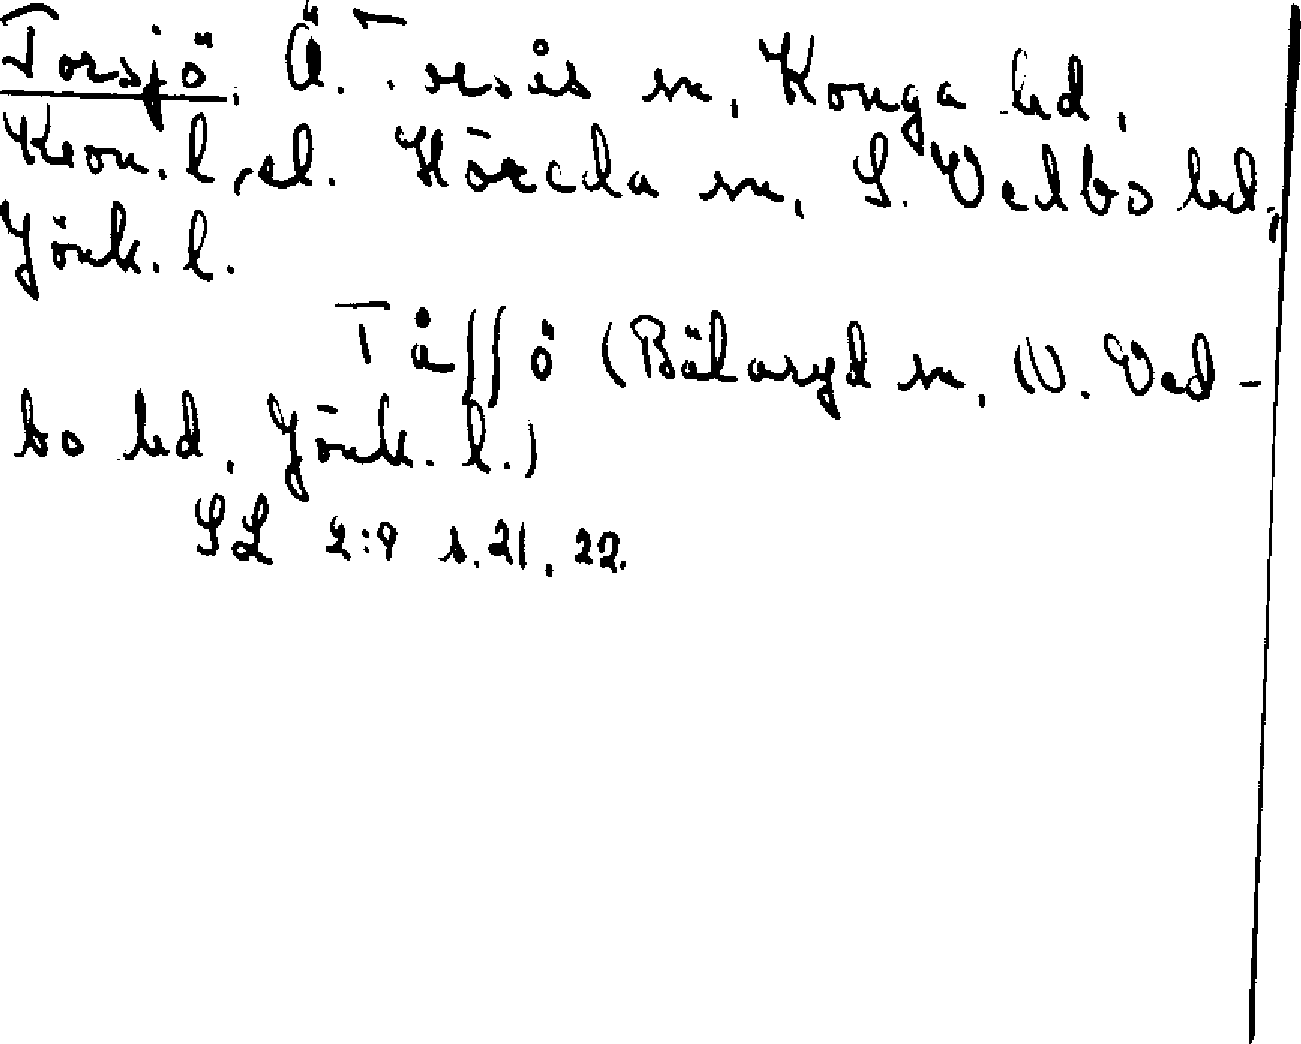 Torsjö. Ä. T. resås sn, Konga hd,
Kron. l, el. Höreda sn, S. Vedbo hd,
Jönk. l.
Tåʃʃö (Bälaryd sn, N. Ved-
bo hd, Jönk. l.)
SL 2:9 s. 21, 22.